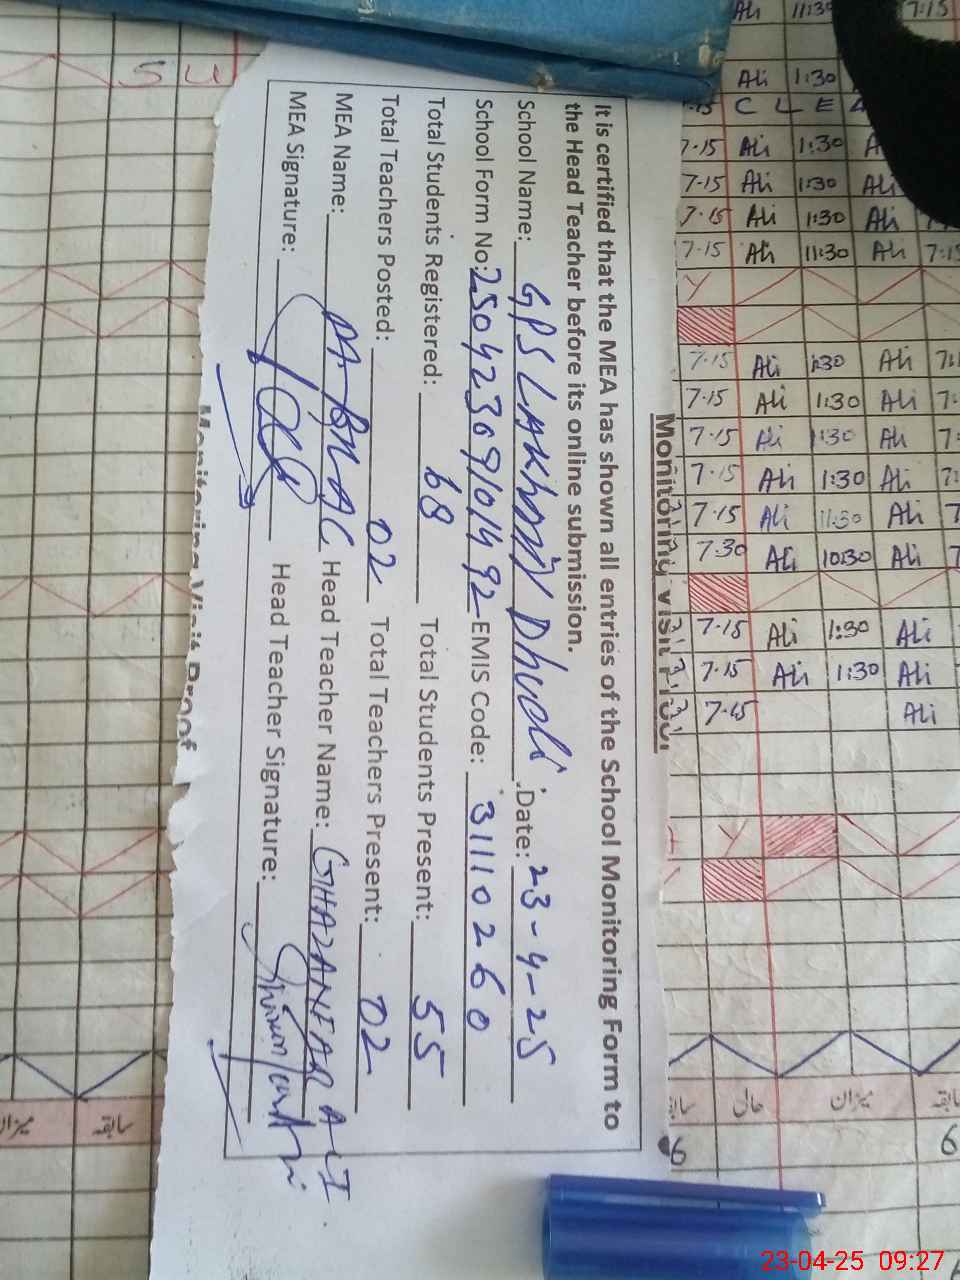 Monitoring Visit Proof
It is certified that the MEA has shown all entries of the School Monitoring Form to
the Head Teacher before its online submission.
School Name: GPS LAKhoDY Dhudi. Date: 23-4-25
School Form No: 250423091014 92 EMIS Code: 31110260
Total Students Registered: 68 Total Students Present: 55
Total Teachers Posted: 02 Total Teachers Present: 02
MEA Name: Head Teacher Name: GHAZANFAR ALI
MEA Signature: Head Teacher Signature:
Monitoring Visit Proof
Ali 11:30 7:15
Ali 1:30
C L E A
7-15 Ali 1:30 A
7-15 Ali 1:30 Ali
7-15 Ali 1:30 Ali
7-15 Ali 11:30 Ali 7:15
7-15 Ali 1:30 Ali
7-15 Ali 1:30 Ali
7-15 Ali 1:30 Ali
7-15 Ali 1:30 Ali
7-15 Ali 11:30 Ali
7.30 Ali 10:30 Ali
7-15 Ali 1:30 Ali
7-15 Ali 1:30 Ali
7-45 Ali
میزان سابقہ حالی میزان سابقہ
6 6
23-04-25 09:27